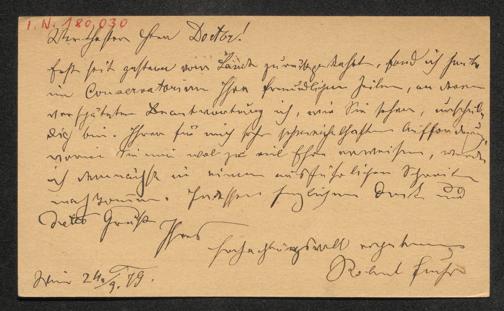 I. N. 180,030
Werthester Herr Doctor!
Erst seit gestern vom Lande zurückgekehrt, fand ich heute
im Conservatorium Ihre freundlichen Zeilen, an deren
verspäteter Beantwortung ich, wie Sie sehen, unschul-
dig bin. Ihrer für mich sehr schmeichelhaften Aufforderung,
worin Sie mir wol zu viel Ehre erweisen, werde
ich demnächst in einem ausführlichen Schreiben
nachkommen. Indessen herzlichen Dank und
Gruß
Ihres
hochachtungsvoll ergebenen
Robert Fuchs
Wien 24/9. 79.